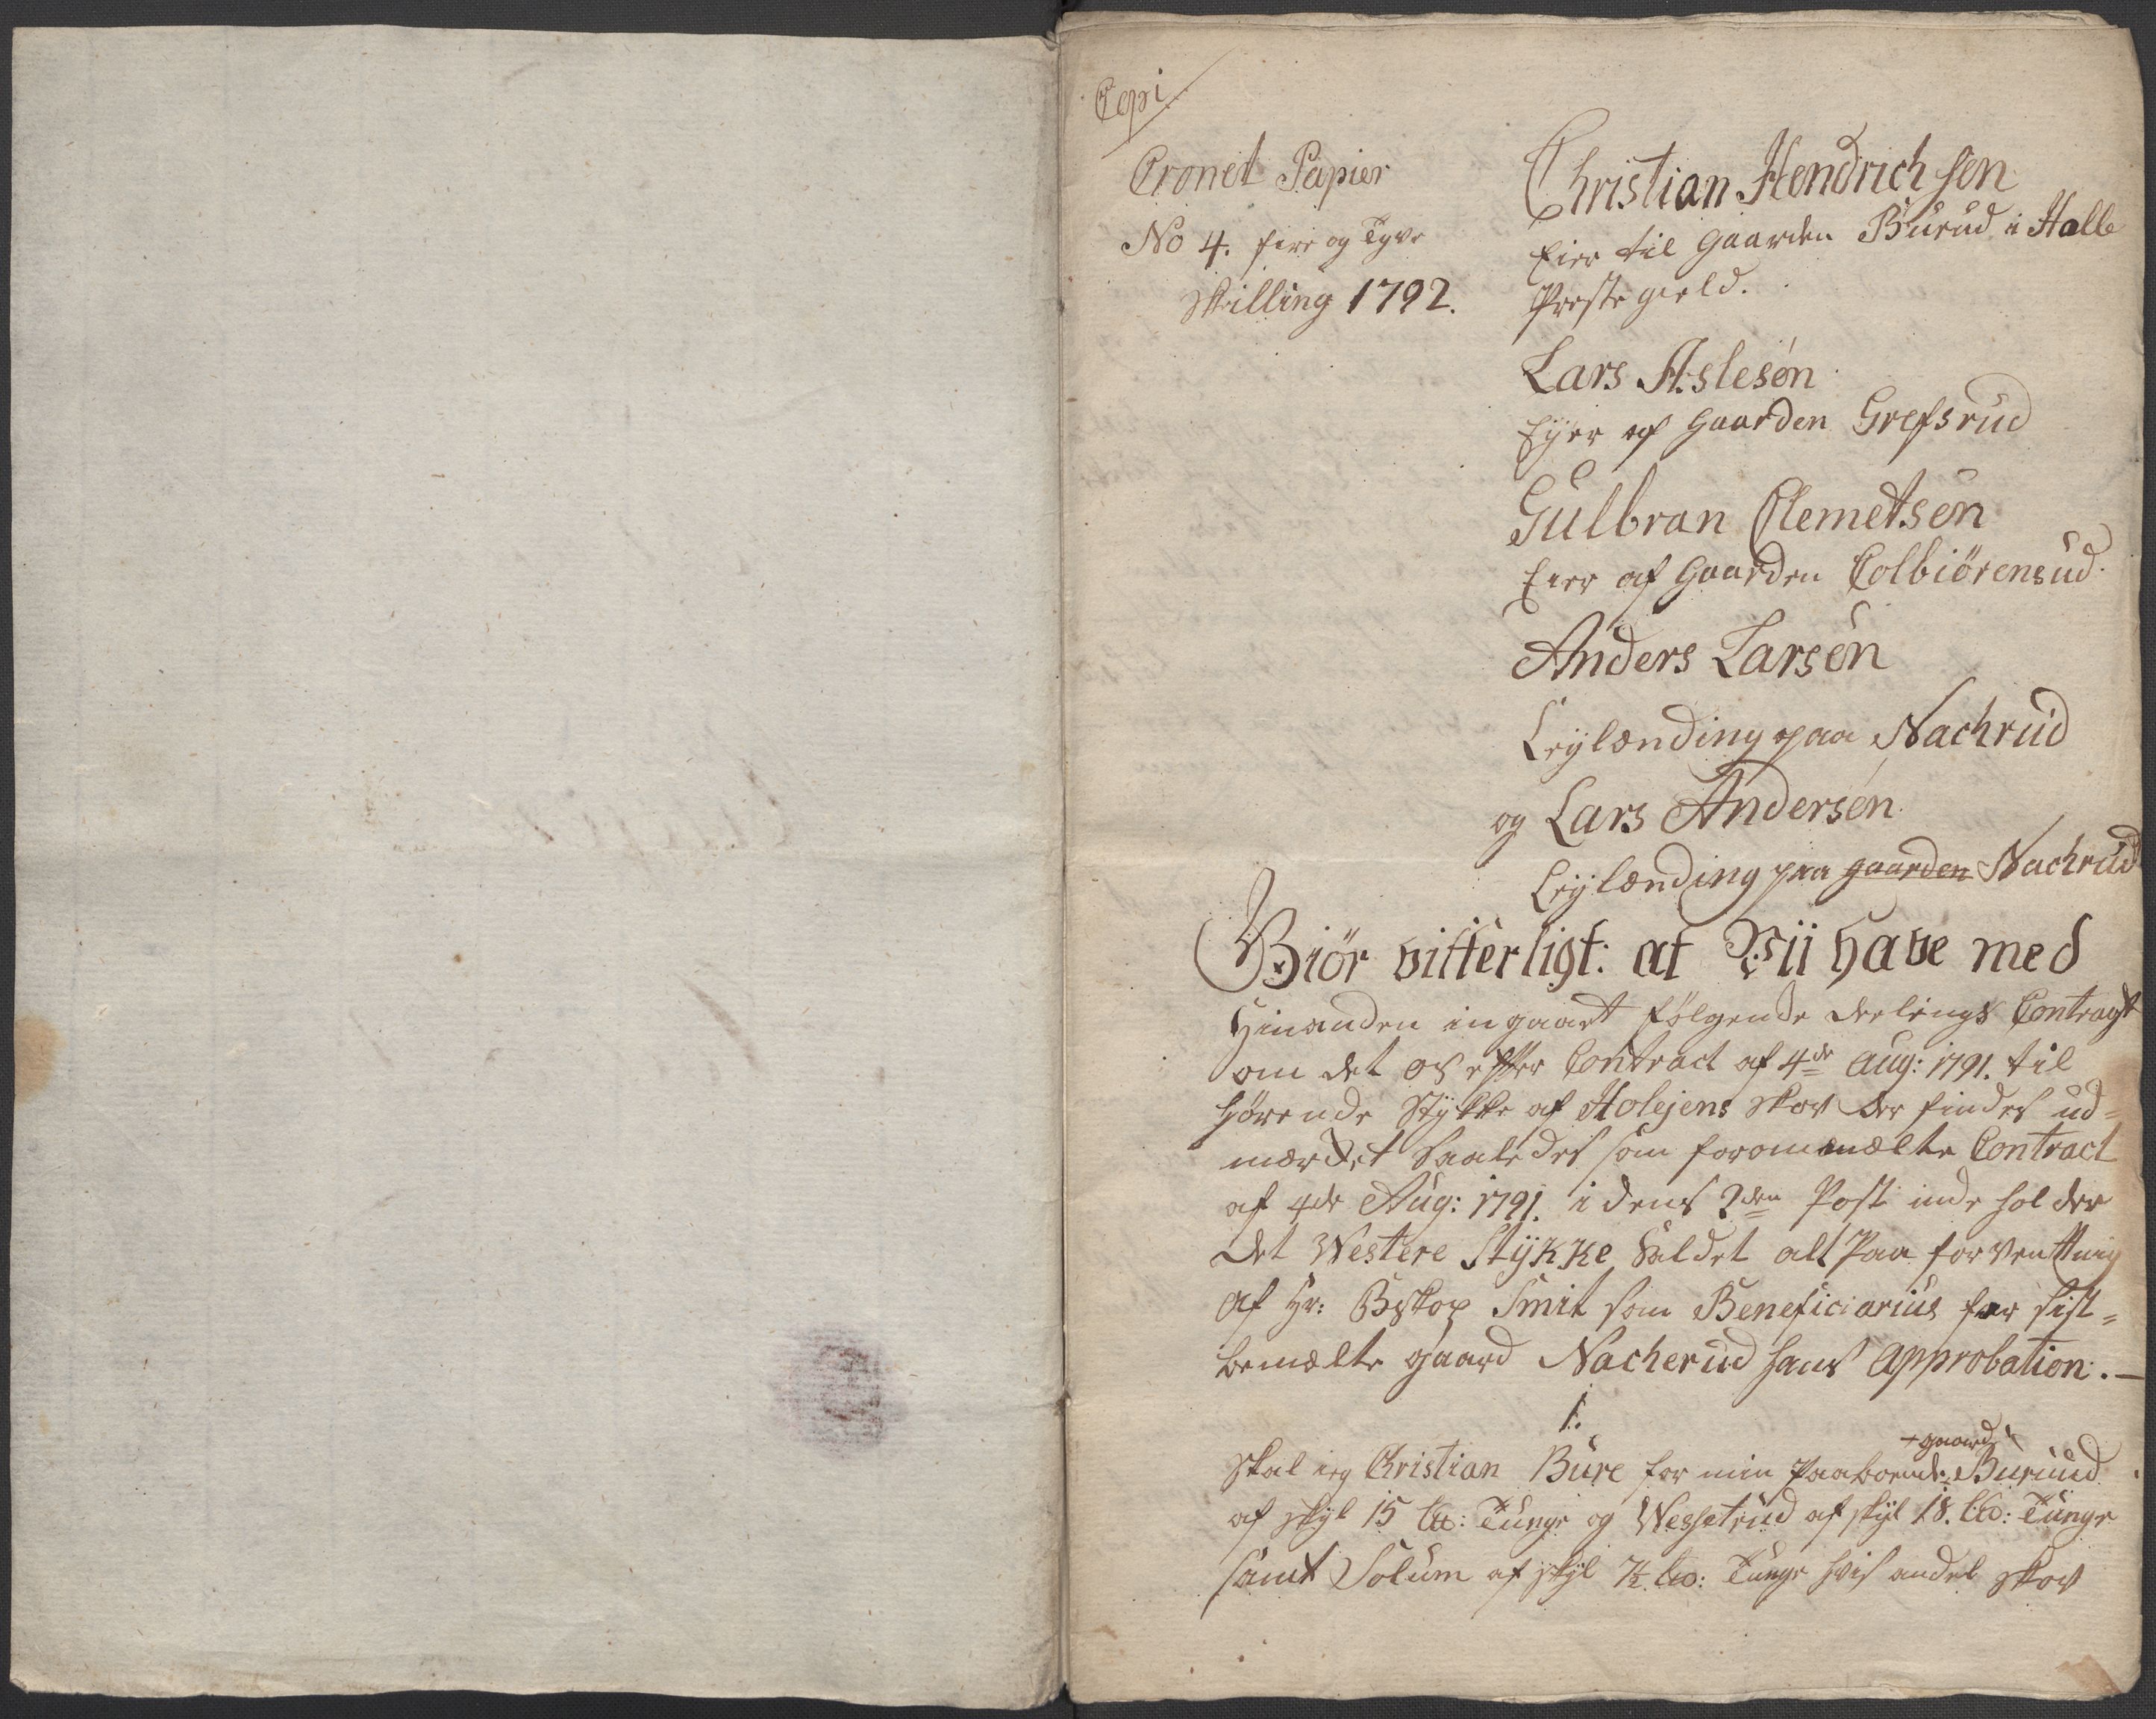 Copi
Cronet Papier
No 4. fire og Tyve
Skilling 1792.
Christian Hendrichsen
Eier til gaarden Burud i Holle
Præstegield.
Lars Aslesøn
Eyer af Gaarden Grefsrud
Gulbran Clemetsøn
Eier af Gaarden Colbiørensud.
Anders Larsøn
Leylænding paa Nachrud
og Lars Andersøn
Leylænding paa gaarden Nachrud
Giør vitterligt: at Vii have med
Hinanden ingaaet følgende deelings Contragt
om det os efter Contract af 4de Aug: 1791. til
hørende Stykke af Holejens Skov der findes ud=
mærket Saaledes som foromemælte Contract
af 4de Aug: 1791. i dens 2den Post inde holder
det Westere Stykke kaldet alt Paa forventtning
af Hr: Biskop Smit som Beneficiarius for sist=
bemælte gaard Nacherud hans Approbation. —
1.
Skal ieg Christian Bure for min Paaboende gaard Buruud
af skyl 15 lb: Tunge og Wessetrud af skyl 18. lb: Tunge
samt Solum af skyl 7½ lb: Tunge hvis andel skov